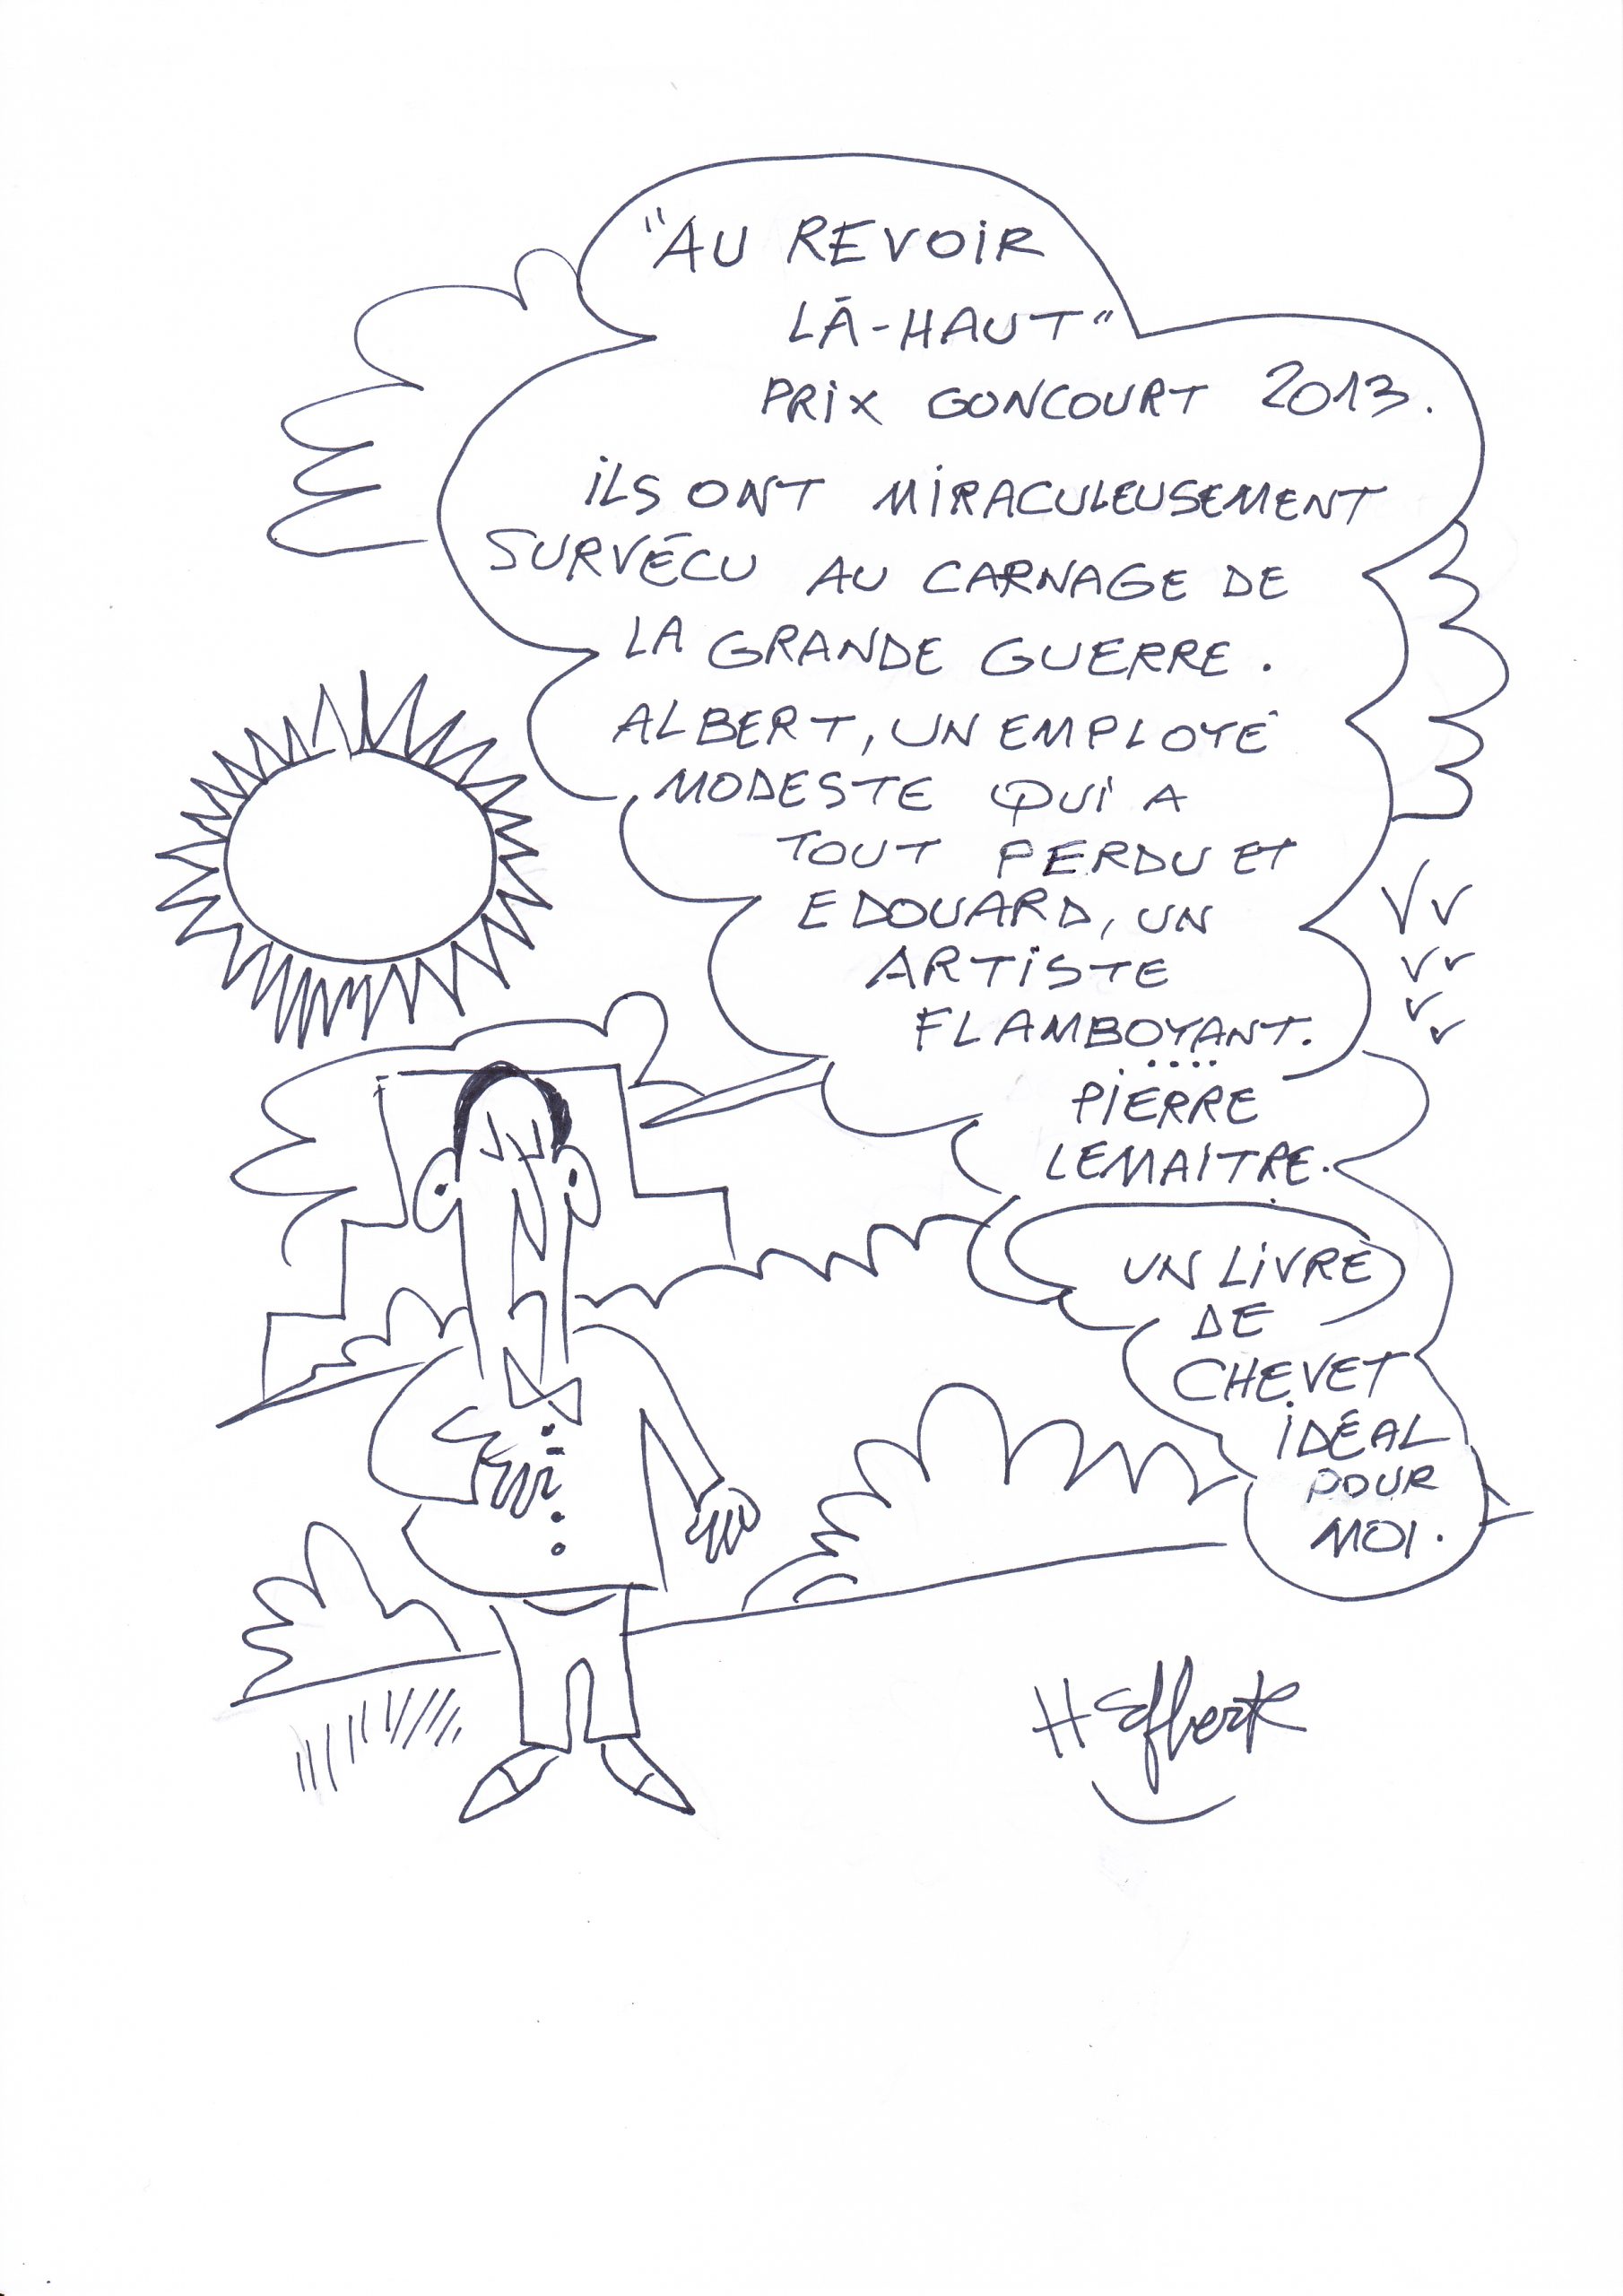 "AU REVOIR
LÀ-HAUT"
PRIX GONCOURT 2013.
ILS ONT MIRACULEUSEMENT
SURVÉCU AU CARNAGE DE
LA GRANDE GUERRE.
ALBERT, UN EMPLOYÉ
MODESTE QUI A
TOUT PERDU ET
EDOUARD, UN
ARTISTE
FLAMBOYANT.
.....
PIERRE
LEMAITRE.
UN LIVRE
DE
CHEVET
IDÉAL
POUR
MOI.